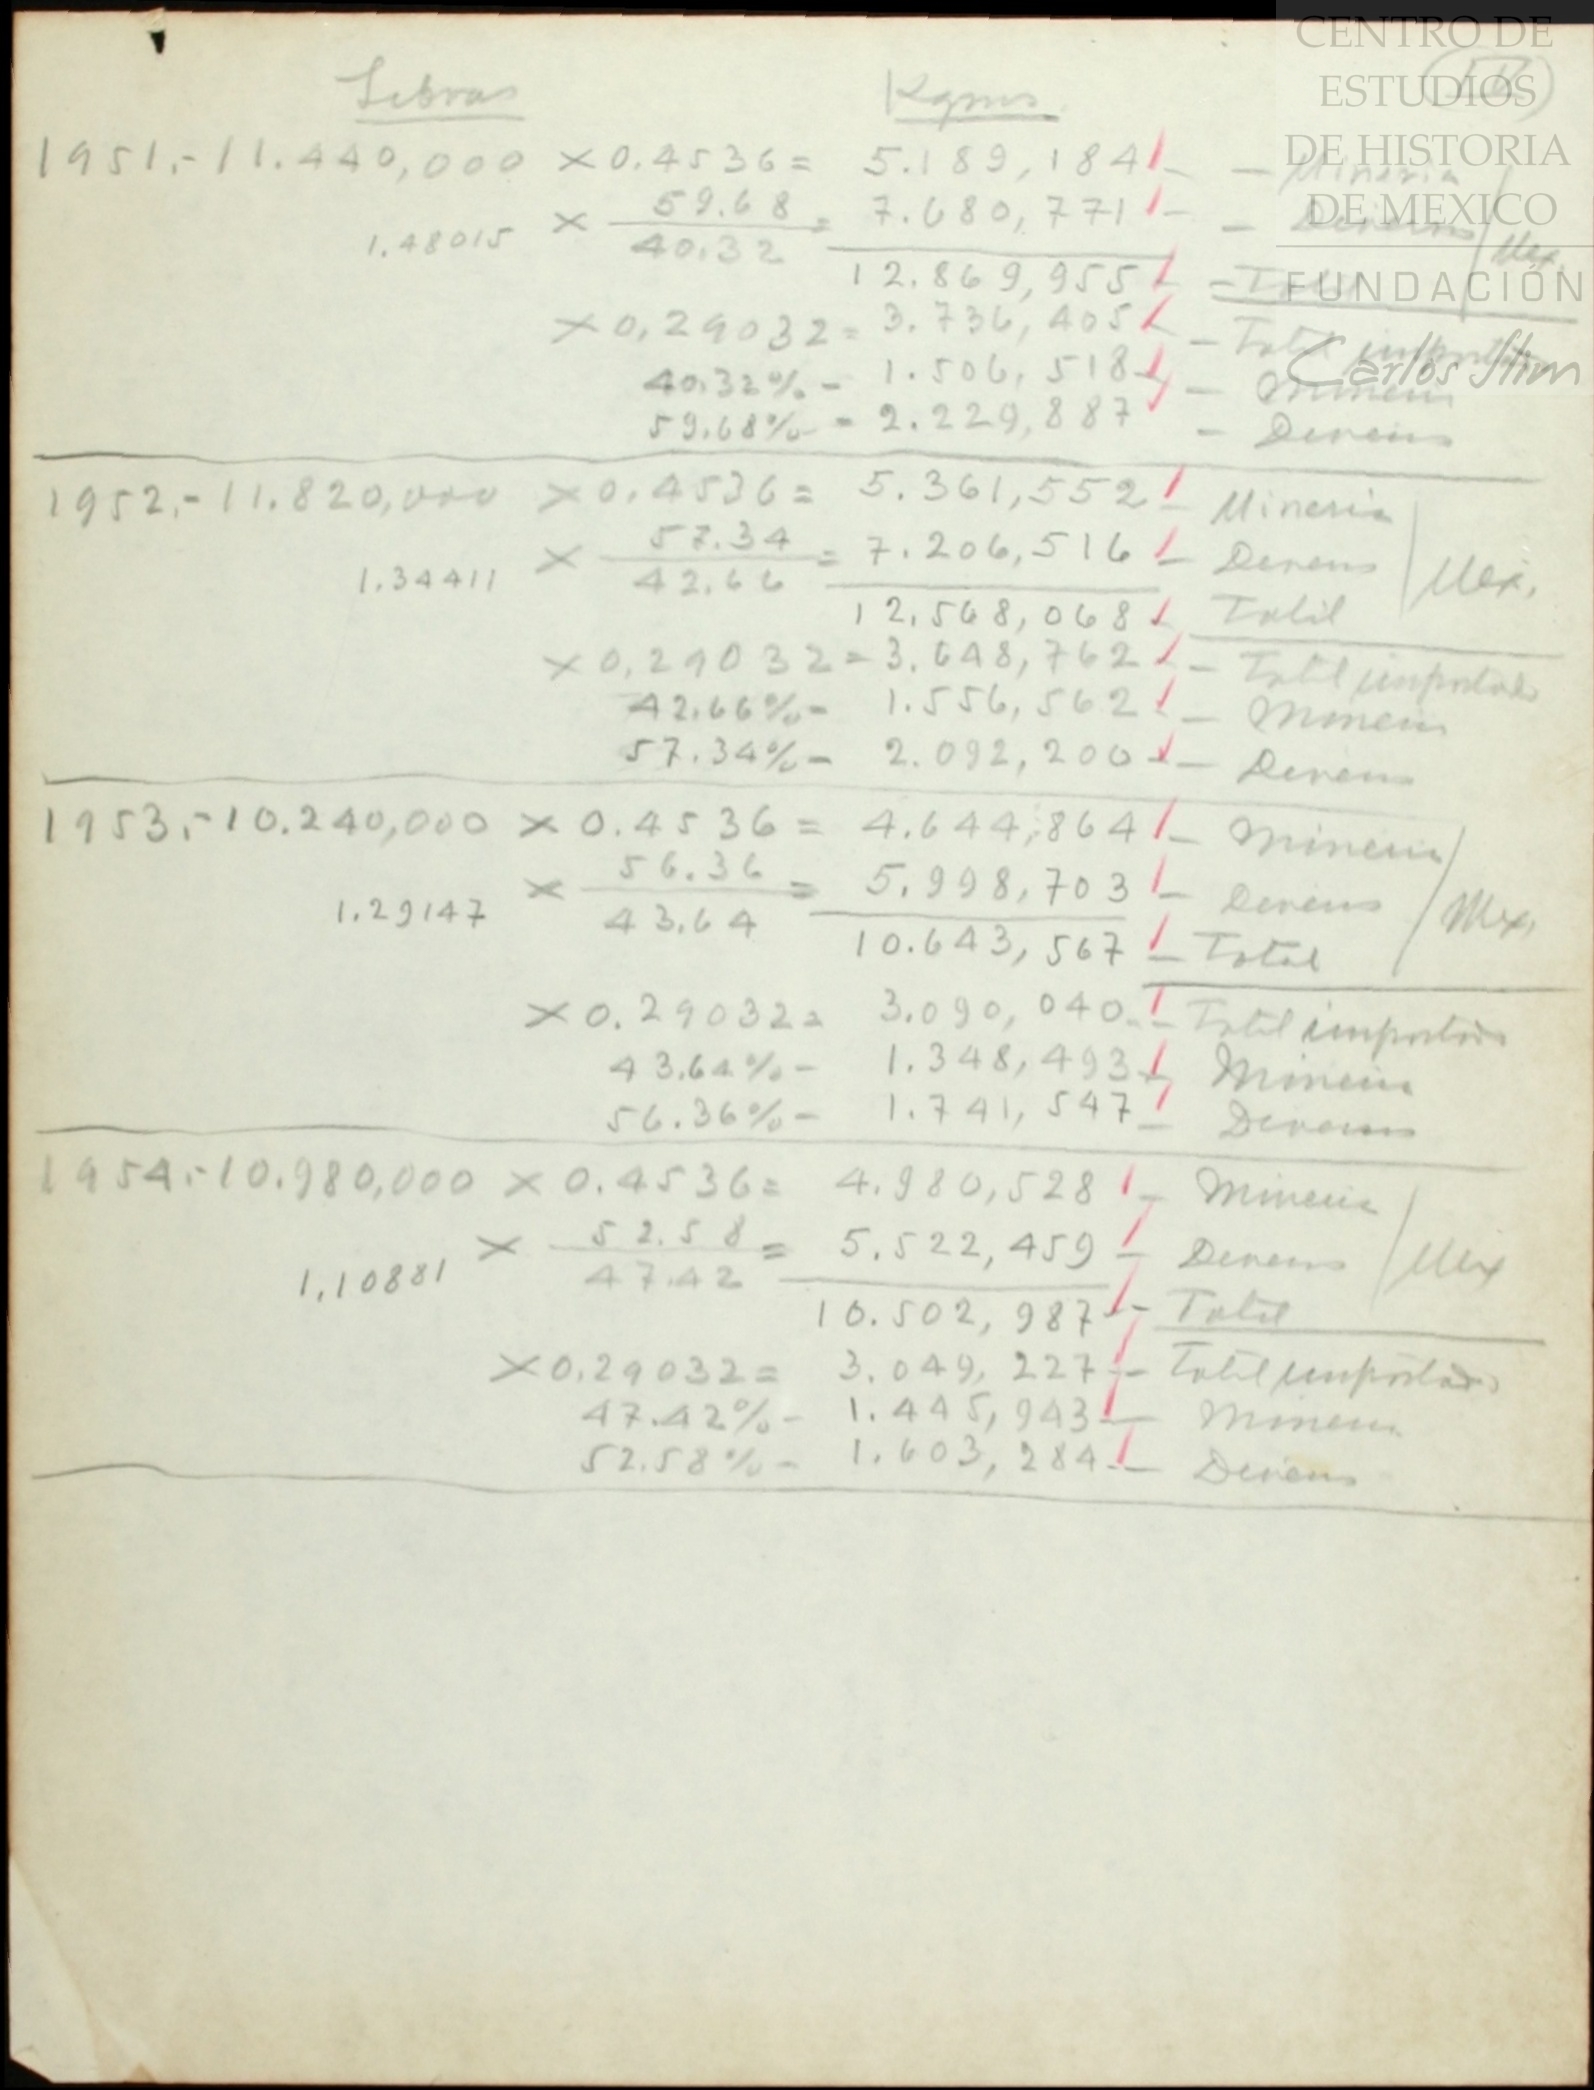 CENTRO DE
ESTUDIOS
DE HISTORIA
DE MEXICO
FUNDACIÓN
Carlos Slim
Libras Kgms.
1951.- 11.440,000 × 0.4536 = 5.189,184 - Mineria
1.48015 × 59.68 / 40.32 = 7.680,771 - Diversos / Mex.
12.869,955 - Total
× 0.29032 = 3.736,405 - Total importado
40.32% - 1.506,518 - Mineria
59.68% - = 2.229,887 - Diversos
1952.- 11.820,000 × 0.4536 = 5.361,552 - Mineria
1.34411 × 57.34 / 42.66 = 7.206,516 - Diversos / Mex.
12.568,068 Total
× 0.29032 = 3.648,762 - Total importado
42.66% - 1.556,562 - Mineria
57.34% - 2.092,200 - Diversos
1953.- 10.240,000 × 0.4536 = 4.644,864 - Mineria
1.29147 × 56.36 / 43.64 = 5.998,703 - Diversos / Mex.
10.643,567 - Total
× 0.29032 = 3.090,040 - Total importado
43.64% - 1.348,493 - Mineria
56.36% - 1.741,547 - Diversos
1954.- 10.980,000 × 0.4536 = 4.980,528 - Mineria
1.10881 × 52.58 / 47.42 = 5.522,459 - Diversos / Mex
10.502,987 - Total
× 0.29032 = 3.049,227 - Total importado
47.42% - 1.445,943 - Mineria
52.58% - 1.603,284 - Diversos